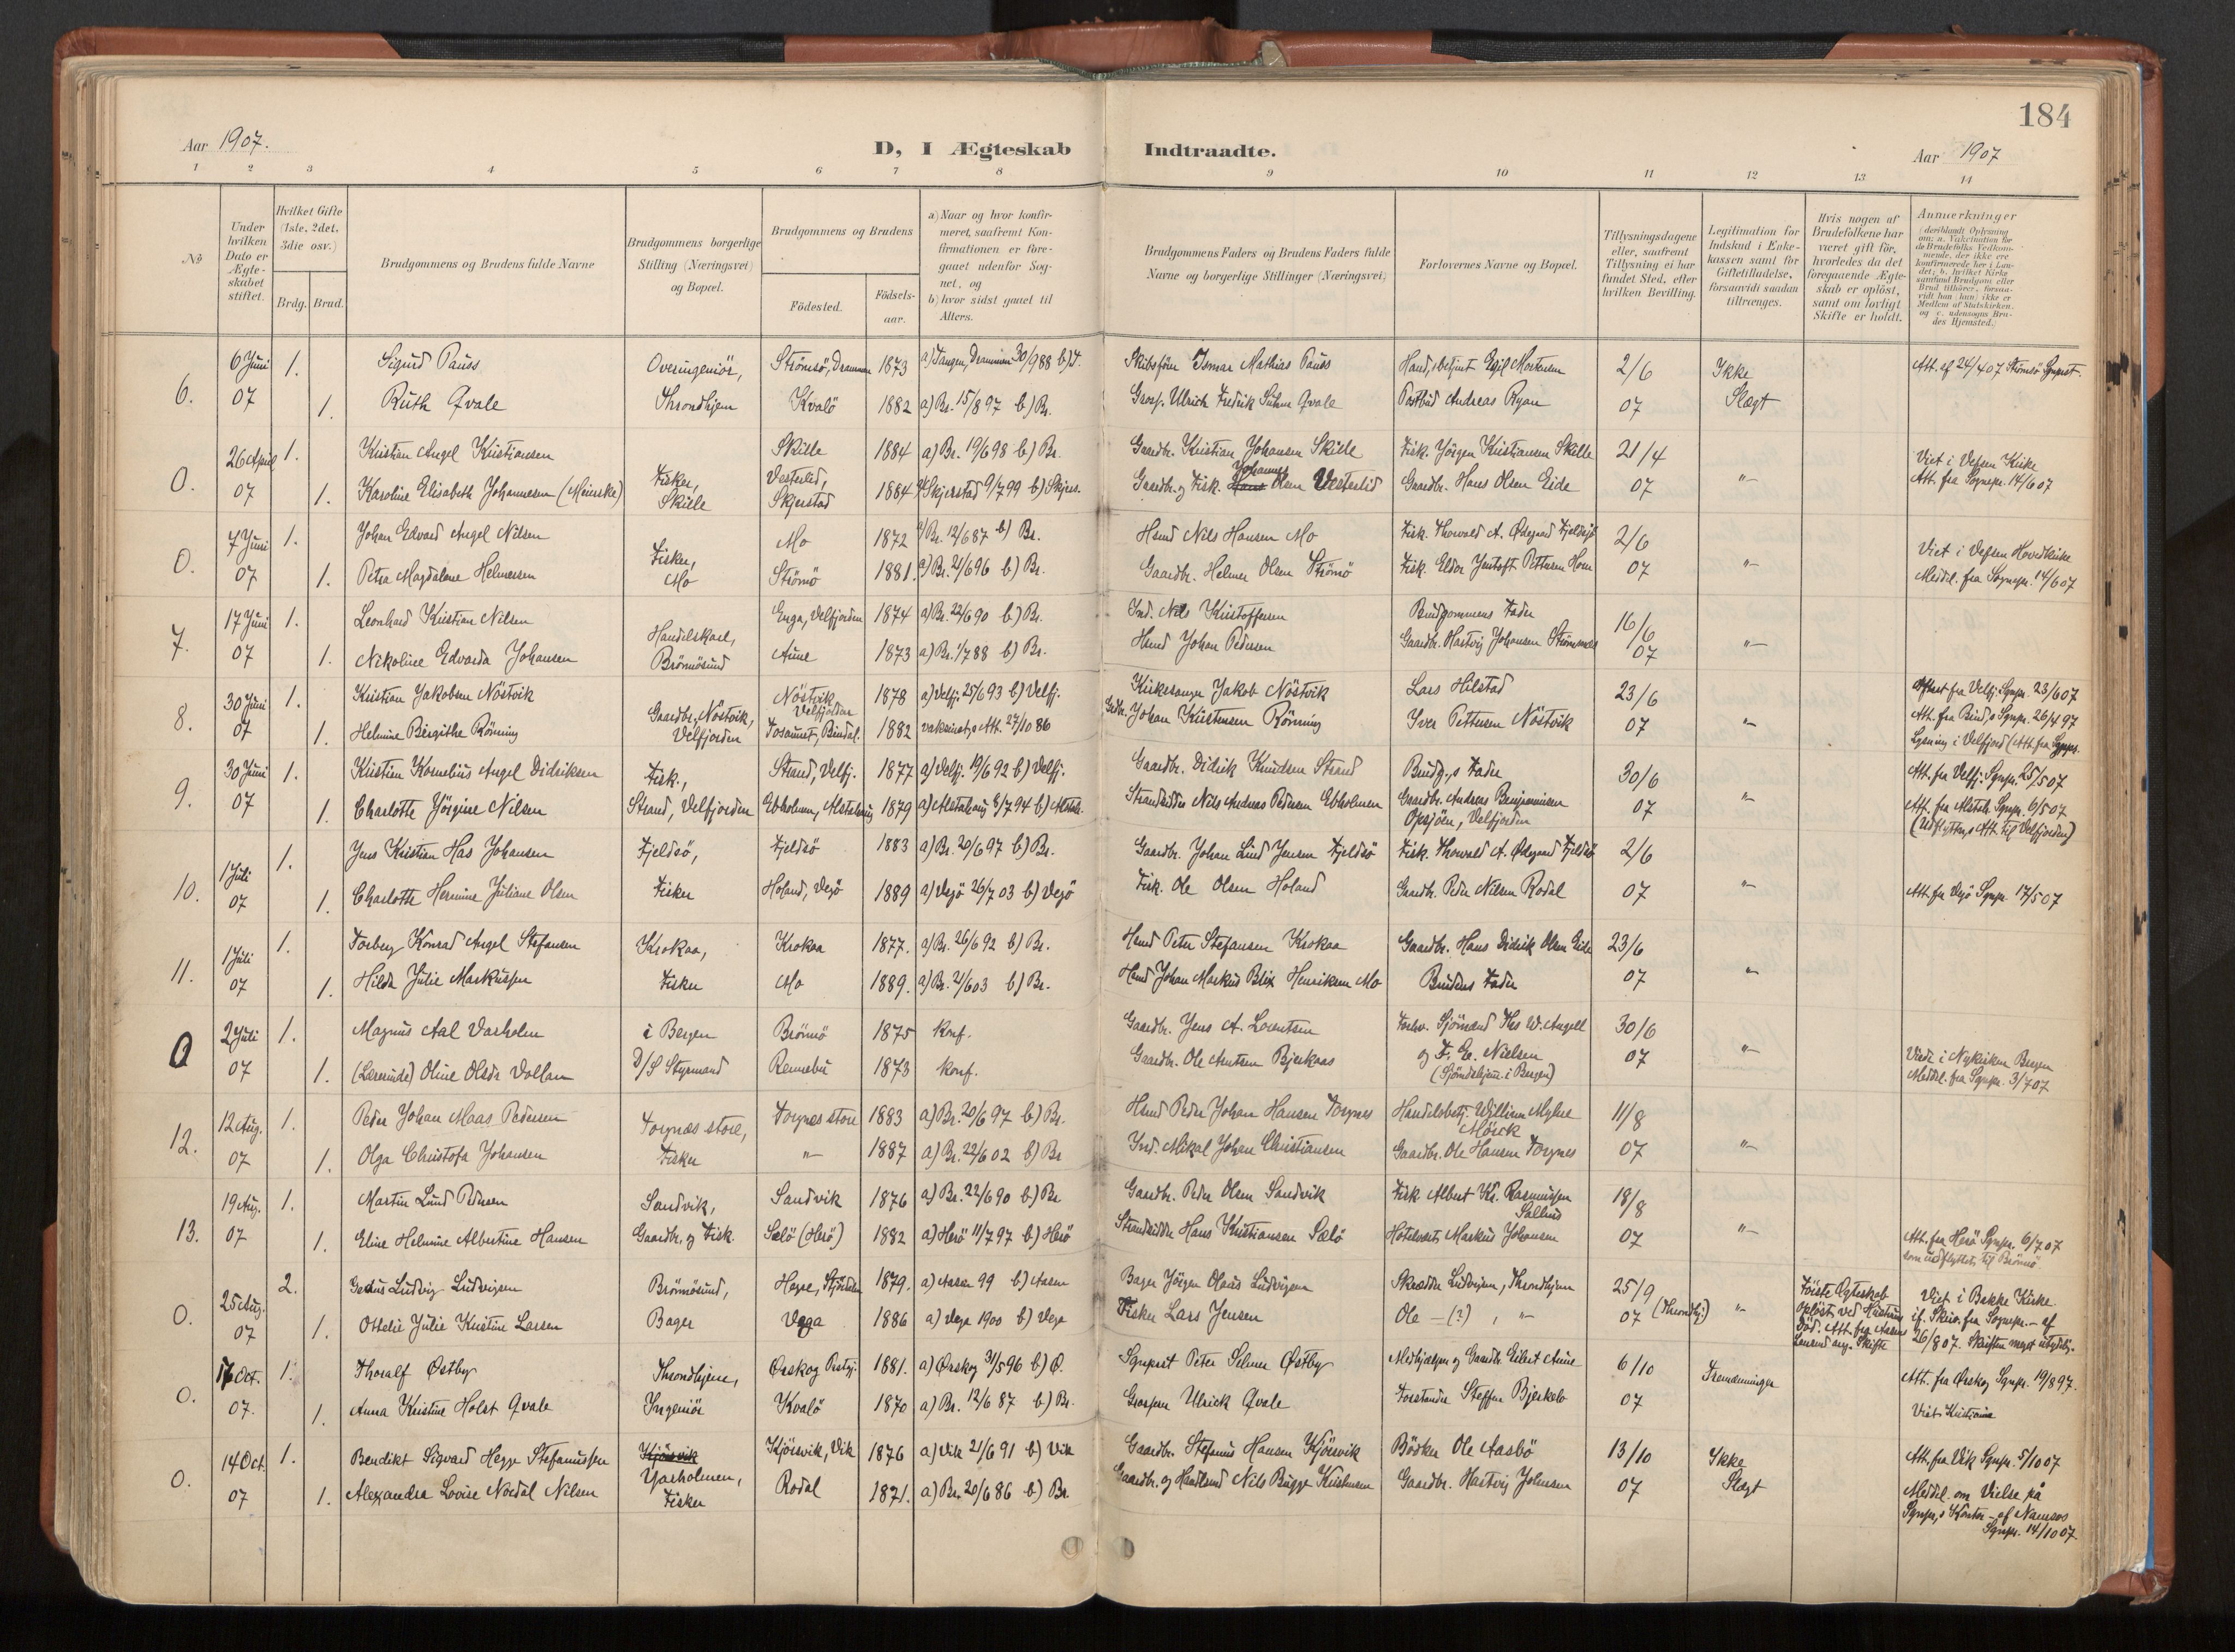 184
Aar 1907.
D, I Ægteskab Indtraadte.
Aar 1907
1 2 3 4 5 6 7 8 9 10 11 12 13 14
№
Under hvilken Dato er Ægte-skabet stiftet.
Hvilket Gifte (1ste, 2det, 3die osv.)
Brdg. Brud.
Brudgommens og Brudens fulde Navne
Brudgommens borgerlige Stilling (Næringsvei) og Bopæl.
Brudgommens og Brudens
Födested.
Födsels-aar.
a) Naar og hvor konfir-meret, saafremt Kon-firmationen er fore-gaaet udenfor Sog-net, og
b) hvor sidst gaaet til Alters.
Brudgommens Faders og Brudens Faders fulde Navne og borgerlige Stillinger (Næringsvei)
Forlovernes Navne og Bopæl.
Tillysningsdagene eller, saafremt Tillysning ei har fundet Sted, efter hvilken Bevilling.
Legitimation for Indskud i Enke-kassen samt for Giftetilladelse, forsaavidt saadan tiltrænges.
Hvis nogen af Brudefolkene har været gift för, hvorledes da det foregaaende Ægte-skab er oplöst, samt om lovligt Skifte er holdt.
Anmerkninger (deriblandt Oplysning om: a. Vakcination for de Brudefolks Vedkom-mende, der ikke ere konfirmerede her i Lan-det; b. hvilket Kirke-samfund Brudgom eller Brud tilhörer, forsaa-vidt han (hun) ikke er Medlem af Statskirken, og c. udensogns Bru-des Hjemsted.)
6. 6 Juni 1. Sigurd Pauss Overingeniör, Strömsö, Drammen 1873 a) Tangen, Drammen 30/9 88 Skibsförer Ismar Mathias Pauss Egil Mortensen 2/6 Ikke Att. af 24/4 07 Strömsö Sgnprst.
07 1. Ruth Qvale Throndhjem Kvalö 1882 a) Br. 15/8 97 b) Br. Grosr. Ulrich Fredrik Suhm Qvale Postbud Andreas Ryan 07 Slægt
0. 26 April 1. Kristian Angel Kristiansen Skille 1884 a) Br. 19/6 98 b) Br. Gaardbr. Kristian Johansen Skille Fisk. Jörgen Kristiansen Skille 21/4 Viet i Vefsen Kirke
07 1. Karoline Elisabeth Johannesen (Meinseke) Fisker, Skille Vesterlid, Skjerstad 1884 Skjerstad 9/7 99 b) Skjers. Gaardbr. og Fisk. Johannes Olsen Vesterlid Gaardbr. Hans Olsen Eide 07 "- Att. fra Sognepr. 14/6 07
0. 7 Juni 1. Johan Edvard Angel Nilsen Fisker, Mo 1872 a) Br. 12/6 87 b) Br. Hmd Nils Hansen Mo Fisk. Thorvald A. Ødegaard Fjeldsö 2/6 Viet i Vefsen Hovedkirke
07 1. Petra Magdalene Helmersen Mo Strömö 1881. a) Br. 21/6 96 b) Br. Gaardbr. Helmer Olsen Strömö Fisk. Eldor Jentoft Pettersen Horn 07 "- Meddel. fra Sognepr. 14/6 07
7. 17 Juni 1. Leonhard Kristian Nilsen Handelskarl, Enga, Velfjorden 1874 a) Br. 22/6 90 b) Br. Ind. Nils Kristoffersen Brudgommens Fader 16/6
07 1. Nikoline Edvarda Johansen Brönnösund Aune 1873 a) Br. 1/7 88 b) Br. Hmd Johan Pedersen Gaardbr. Hartvig Johansen Strömsnes 07 "-
8. 30 Juni 1. Kristian Jakobsen Nöstvik Gaardbr., Nöstvik, Nöstvik Velfjorden 1878 a) Velfj. 25/6 93 b) Velfj. Kirkesanger Jakob Nöstvik Lars Hilstad 23/6 Attest fra Velfj. Sgnpr. 23/6 07
07 1. Helmine Bergithe Rönning Velfjorden Tosaunet, Bindal. 1882 vaksinat.s Att. 27/10 86 Grdbr. Johan Kristensen Rönning Iver Pettersen Nöstvik 07 "- Att. fra Bind.s Sgnpr. 26/4 97
Lysning i Velfjord (Att. fra Sgnpr.
9. 30 Juni 1. Kristian Kornelius Angel Didriksen Fisk., Strand, Velfj. 1877 a) Velfj. 19/6 92 b) Velfj. Gaardbr. Didrik Knudsen Strand Brudg.s Fader 30/6 Att. fra Velfj. Sgnpr. 25/5 07
07 1. Charlotte Jörgine Nilsen Strand, Velfjorden Ebholmen, Alstahaug 1879 a) Alstahaug 8/7 94 b) Alstah. Strandsidder Nils Andreas Pedersen Ebholmen Gaardbr. Andreas Benjaminsen Opsjöen, Velfjorden 07 "- Att. fra Alstah. Sgnpr. 6/5 07
(Udflyttn.s Att. til Velfjorden)
10. 1 Juli 1. Jens Kristian Has Johansen Fjeldsö, Fjeldsö 1883 a) Br. 20/6 97 b) Br. Gaardbr. Johan Lind Jensen Fjeldsö Fisk. Thorvald A. Ødegaard Fjeldsö 2/6
07 1. Charlotte Hermine Juliane Olsen Fisker Holand, Vegö 1889 a) Vegö 26/7 03 b) Vegö Fisk. Ole Olsen Holand Gaardbr. Peder Nilsen Rodal 07 "- Att. fra Vegö Sgnpr. 17/5 07
11. 1 Juli 1. Torberg Konrad Angel Stefansen Krokaa, Krokaa 1877. a) Br. 26/6 92 b) Br. Hmd Peter Stefansen Krokaa Gaardbr. Hans Didrik Olsen Eide 23/6
07 1. Hilda Julie Markussen Fisker Mo 1889. a) Br. 21/6 03 b) Br. Hmd Johan Markus Blix Henriksen Mo Brudens Fader 07 "-
0 2 Juli 1. Magnus Aal Varholm i Bergen Brönnö 1875 konf. Gaardbr. Jens A. Lorentsen Forhv. Sjömand Ths W. Angell 30/6
07 1. (Lærerinde) Oline Olsdr Vollan D/S Styrmand Rennebu 1873 konf. Gaardbr. Ole Arntsen Bjerkaas og F. E. Nielsen (Sjömdshjem. i Bergen) 07 "- Viede i Nykirken Bergen
Meddel. fra Sgnpr. 3/7 07
12. 12 Aug. 1. Peder Johan Maas Pedersen Torgnæs store, Torgnes store 1883 a) Br. 20/6 97 b) Br. Hmd Peder Johan Hansen Torgnes Handelsbetj. William Myhre Mörck 11/8
07 1. Olga Christofa Johansen Fisker "- 1887 a) Br. 22/6 02 b) Br Ind. Mikal Johan Christiansen Gaardbr. Ole Hansen Torgnes 07 "-
13. 19 Aug. 1. Martin Lund Pedersen Sandvik, Sandvik 1876 a) Br. 22/6 90 b) Br Gaardbr. Peder Olsen Sandvik Fisk Albert Kr. Rasmussen Salhus 18/8
07 1. Eline Helmine Albertine Hansen Gaardbr. og Fisk. Sælö (Herö) 1882 a) Herö 11/7 97 b) Herö Strandsidder Hans Kristiansen Sælö Hotelvert Markus Johansen 07 "- Att. fra Herö Sgnpr. 6/7 07
som udflyttet til Brönnö
0. 25 Aug. 2. Ludvig Ludvigsen Brönnösund, Hegre, Stjördalen 1879. a) Aasen 99 b) Aasen Bager Jörgen Olaus Ludvigsen Skrædder Ludvigsen, Throndhjem 25/9 Förste Ægteskab oplöst ved Hustrues Död. Att. fra Aasens Lensmd ang. Skifte Viet i Bakke Kirke
07 1. Ottelie Julie Kristine Larsen Bager Vega 1886 a) Vega 1900 b) Vega Fisker Lars Jensen Ole — (?) , "- 07 (Throndhj.) "- if. Skriv. fra Sognepr. – af
26/8 07. Skiften meget utydelig.
0. Oct. 1. Thoralf Østby Throndhjem, Ørskog Prstgj. 1881. a) Ørskog 31/5 96 b) Ø. Sgnprst Peter Selmer Østby Medhjælper og Gaardbr. Eilert Aune 6/10 Fremmenninger Att. fra Ørskog Sgnpr. 19/8 97.
07. 1. Anna Kristine Holst Qvale Ingeniör Kvalö 1870 a) Br. 12/6 87 b) Br. Grosser Ulrick Qvale Forstander Steffen Bjerkebo 07 Viet i Kristiania
0. 14 Oct. 1. Bendikt Sigvard Hegge Stefanussen Kjörsvik Kjörsvik, Vik 1876 a) Vik 21/6 91 b) Vik Gaardbr. Stefanus Hansen Kjörsvik Bödker Ole Aasbö 13/10 Ikke Att. fra Vik Sgnpr. 5/10 07
07 1. Alexandra Lovise Nordal Nilsen Yarholmen, Fisker Rodal 1871. a) Br. 20/6 86 b) Br. Gaardbr. og Handlsmd Nils Brügge Kristensen Gaardbr. Hartvig Johnsen 07 Slægt Meddel. om Vielse på
Sgnpr.s Kontor – af Namsos
Sgnpr. 14/10 07.